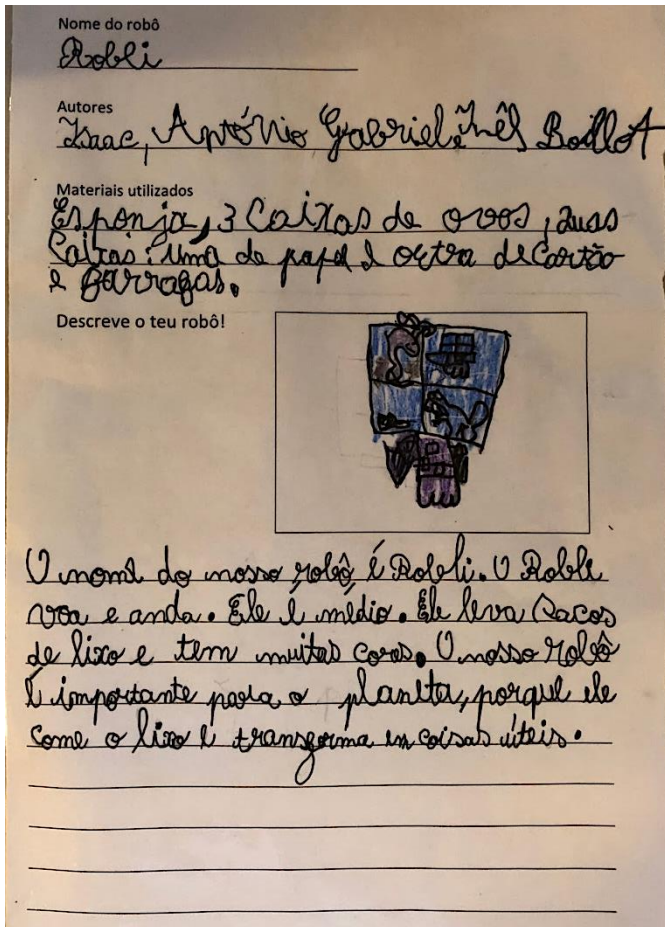 Nome do robô
Robli
Autores
Isaac, António Gabriel, Inês
Materiais utilizados
Esponja, 3 Caixas de ovos, duas
Caixas: uma de papel e outra de Cartão
e garrafas.
Descreve o teu robô!
O nome do nosso robô é Robli. O Roble
voa e anda. Ele é médio. Ele leva Sacos
de lixo e tem muitas cores. O nosso robô
É importante para o planeta, porque ele
Come o lixo e transforma em coisas úteis.